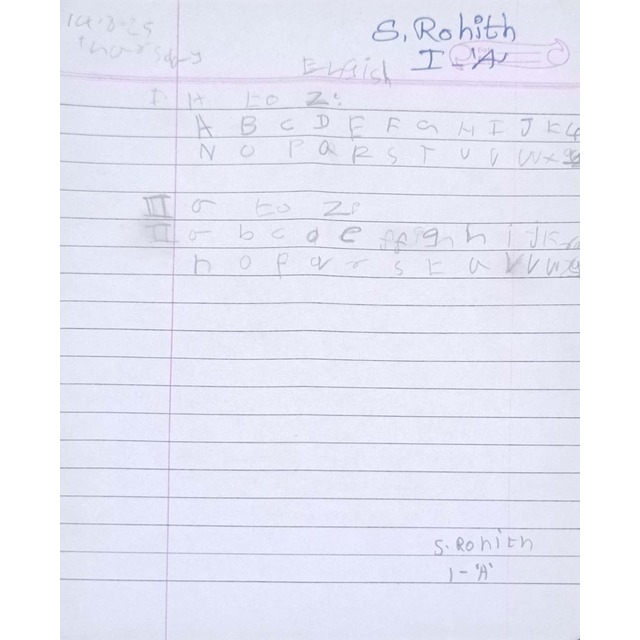 S. Rohith
I - 'A'
English
I. A to Z:
A B C D E F G H I J K L
N O P Q R S T U V W X
III a to z
II a b c d e f g h i j k
n o p q r s t u v w x
S. Rohith
1 - 'A'